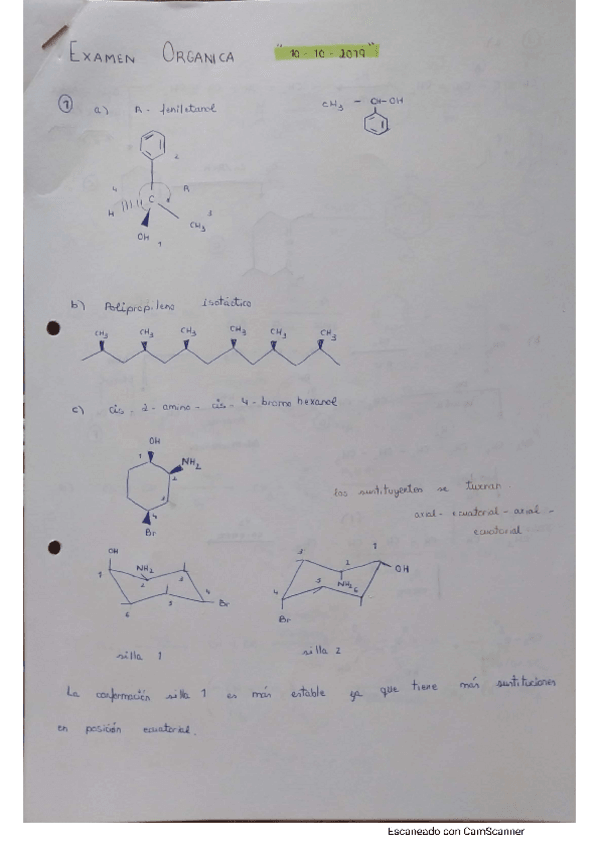 EXAMEN ORGANICA "10-10-2019"
① a) R - feniletanol
CH3 - CH-OH
2
4
R
H
C
3
CH3
OH
1
b) Polipropileno Isotáctico
CH3 CH3 CH3 CH3 CH3 CH3
c) cis - 2 - amino - cis - 4 - bromo hexanol
OH
1
NH2
2
3
4
Br
los sustituyentes se turnan
axial - ecuatorial - axial -
ecuatorial
OH
NH2
1
2
3
3
4
Br
6
3
2
1
OH
3
NH2
6
4
Br
silla 1
silla 2
La conformación silla 1 es más estable ya que tiene más sustituciones
en posición ecuatorial.
Escaneado con CamScanner